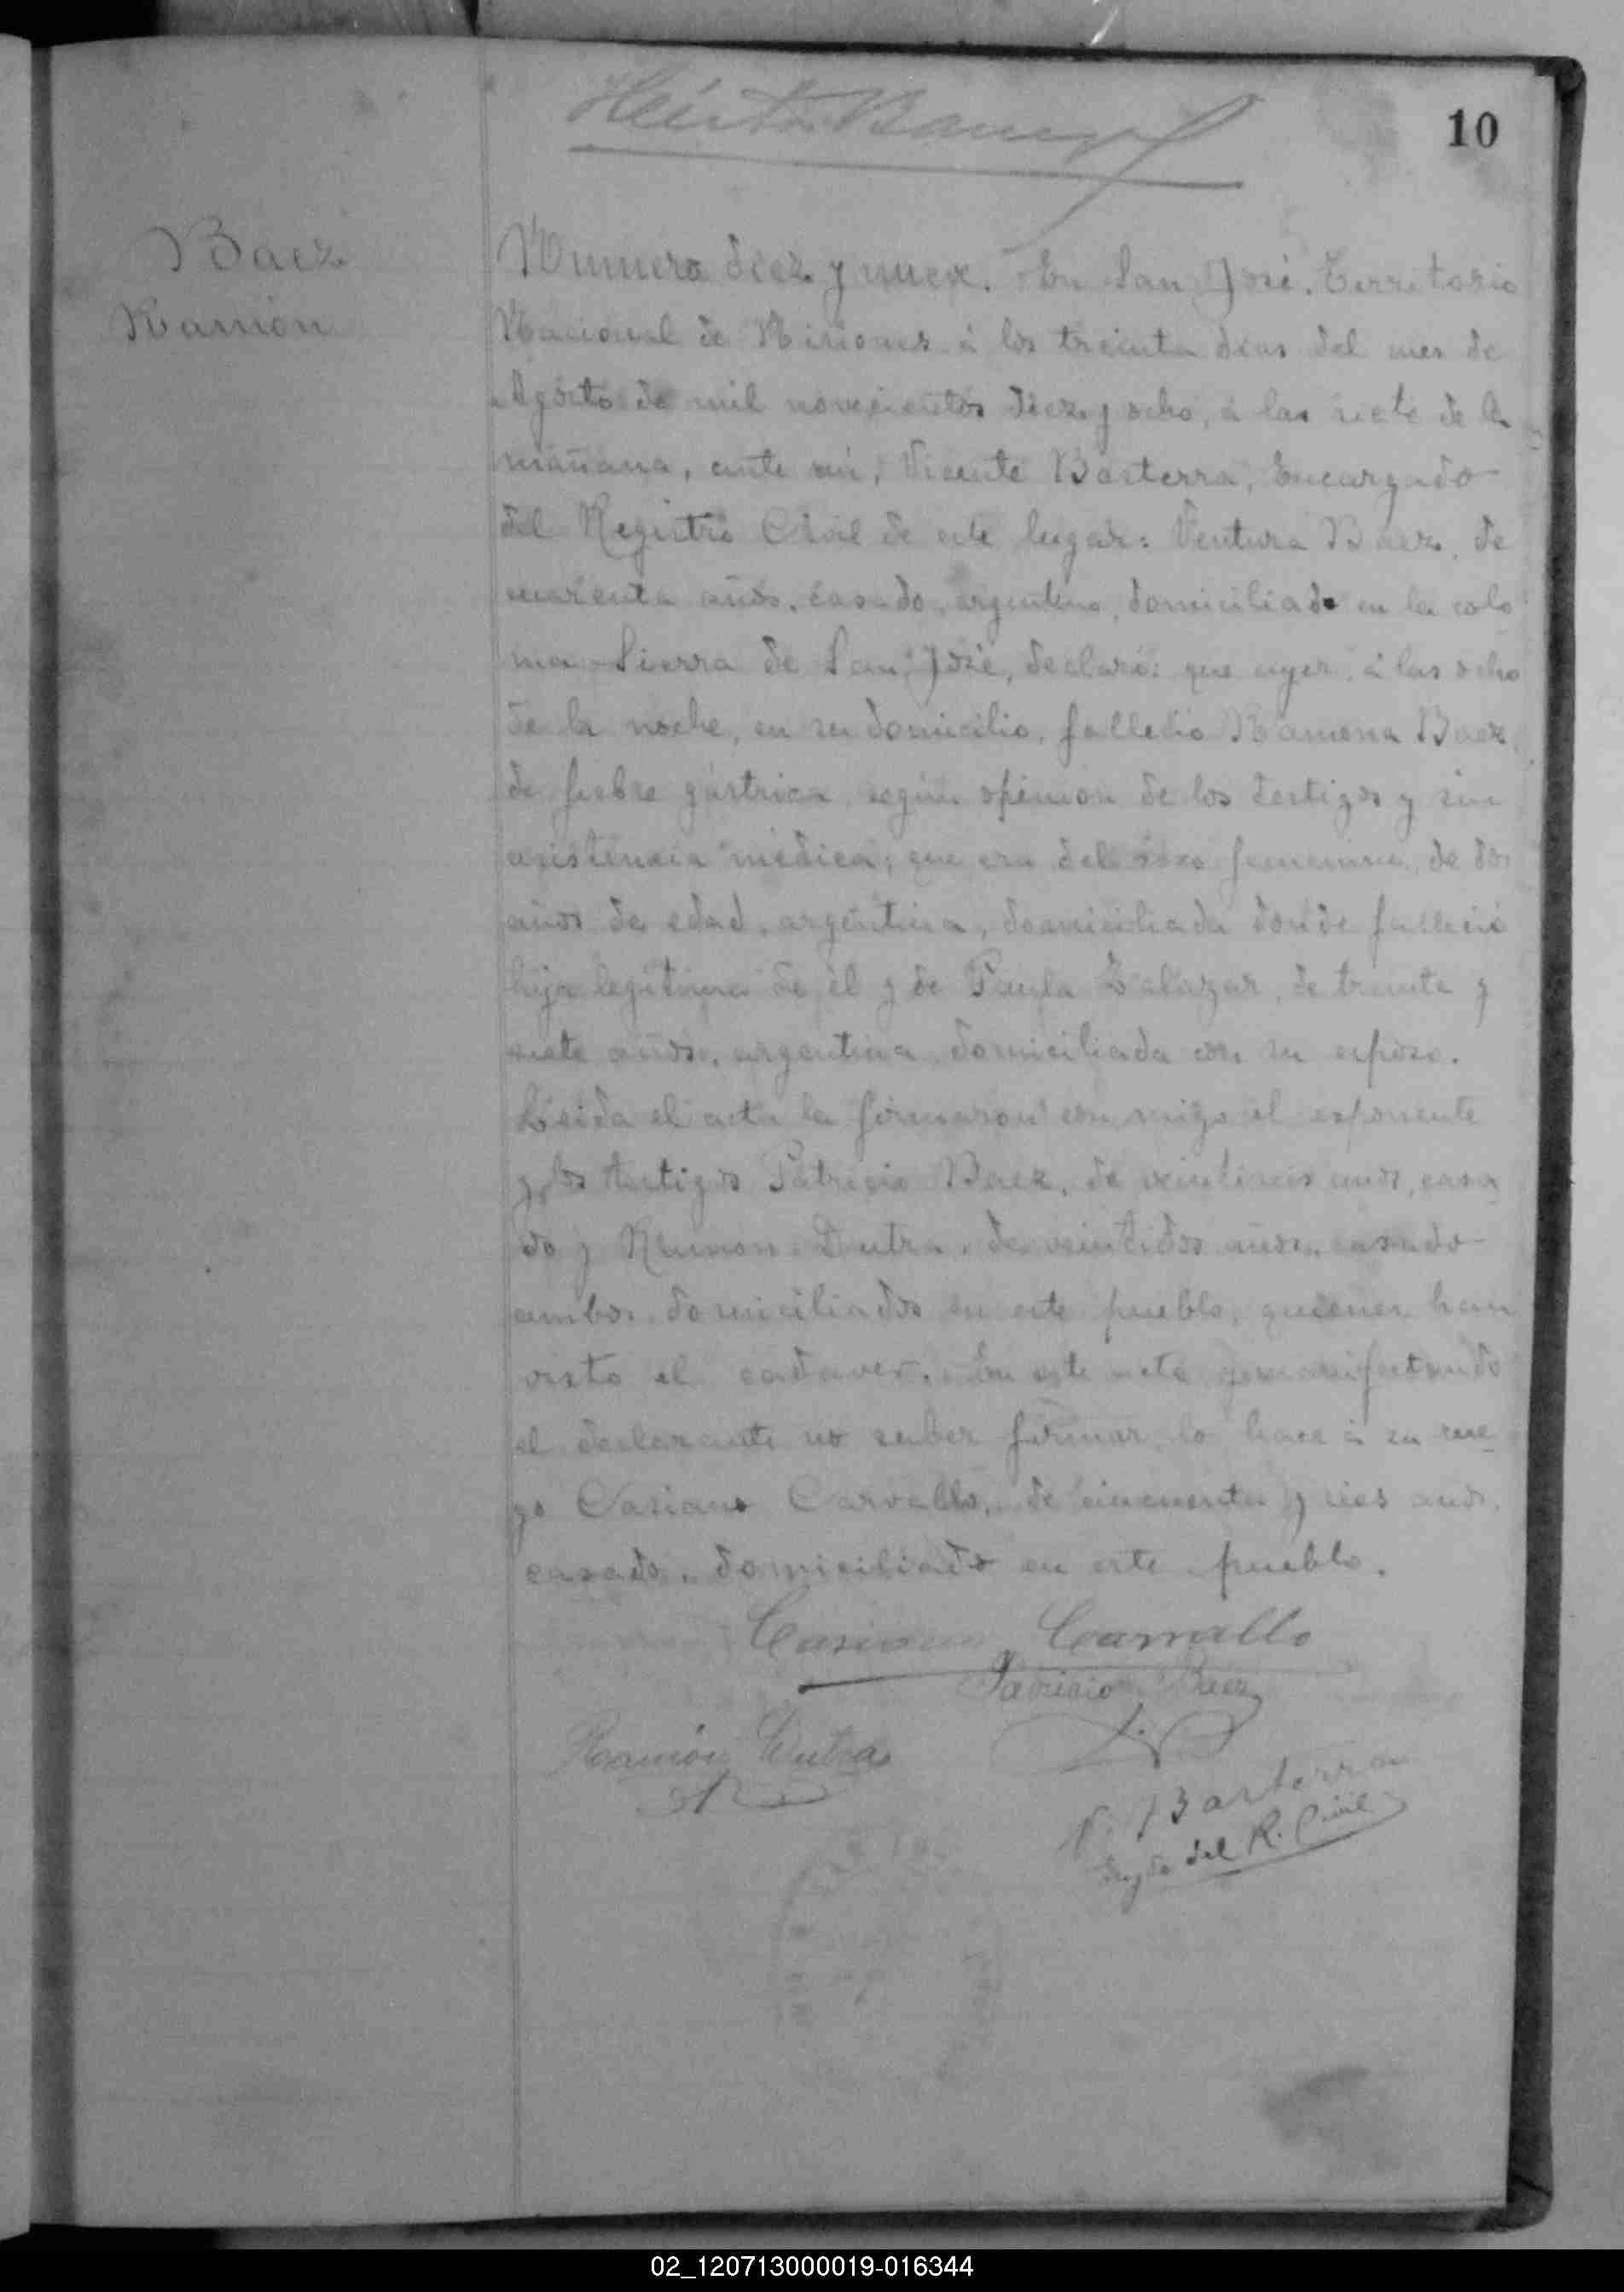 10
Baez
Ramón
Numero diez y nueve. En San José, Territorio
Nacional de Misiones á los treinta dias del mes de
Agosto de mil novecientos diez y ocho, á las siete de la
mañana, ante mí, Vicente Basterra, Encargado
del Registro Civil de este lugar: Ventura Baez, de
cuarenta años, casado, argentino, domiciliado en la colo
nia Sierra de San José, declaró: que ayer á las ocho
de la noche, en su domicilio, falleció Ramona Baez
de fiebre gástrica según opinion de los testigos y sin
asistencia médica; que era del sexo femenino, de dos
años de edad, argentina, domiciliada donde falleció
hija legítima de él y de Paula Zalazar, de treinta y
siete años, argentina domiciliada con su esposo.
Leida el acta la firmaron con migo el exponente
y los testigos Patricio Baez, de veintiseis años, casa
do y Ramon Dutra, de veintidos años, casado
ambos domiciliados en este pueblo, quienes han
visto el cadaver. En este acto manifestando
el declarante no saber firmar lo hace á su rue
go Casiano Carvallo, de cincuenta y seis años,
casado, domiciliado en este pueblo.
Casiano Carvallo
Patricio Baez
Ramón Dutra
V. Basterra
Engdo del R. Civil
02_120713000019-016344